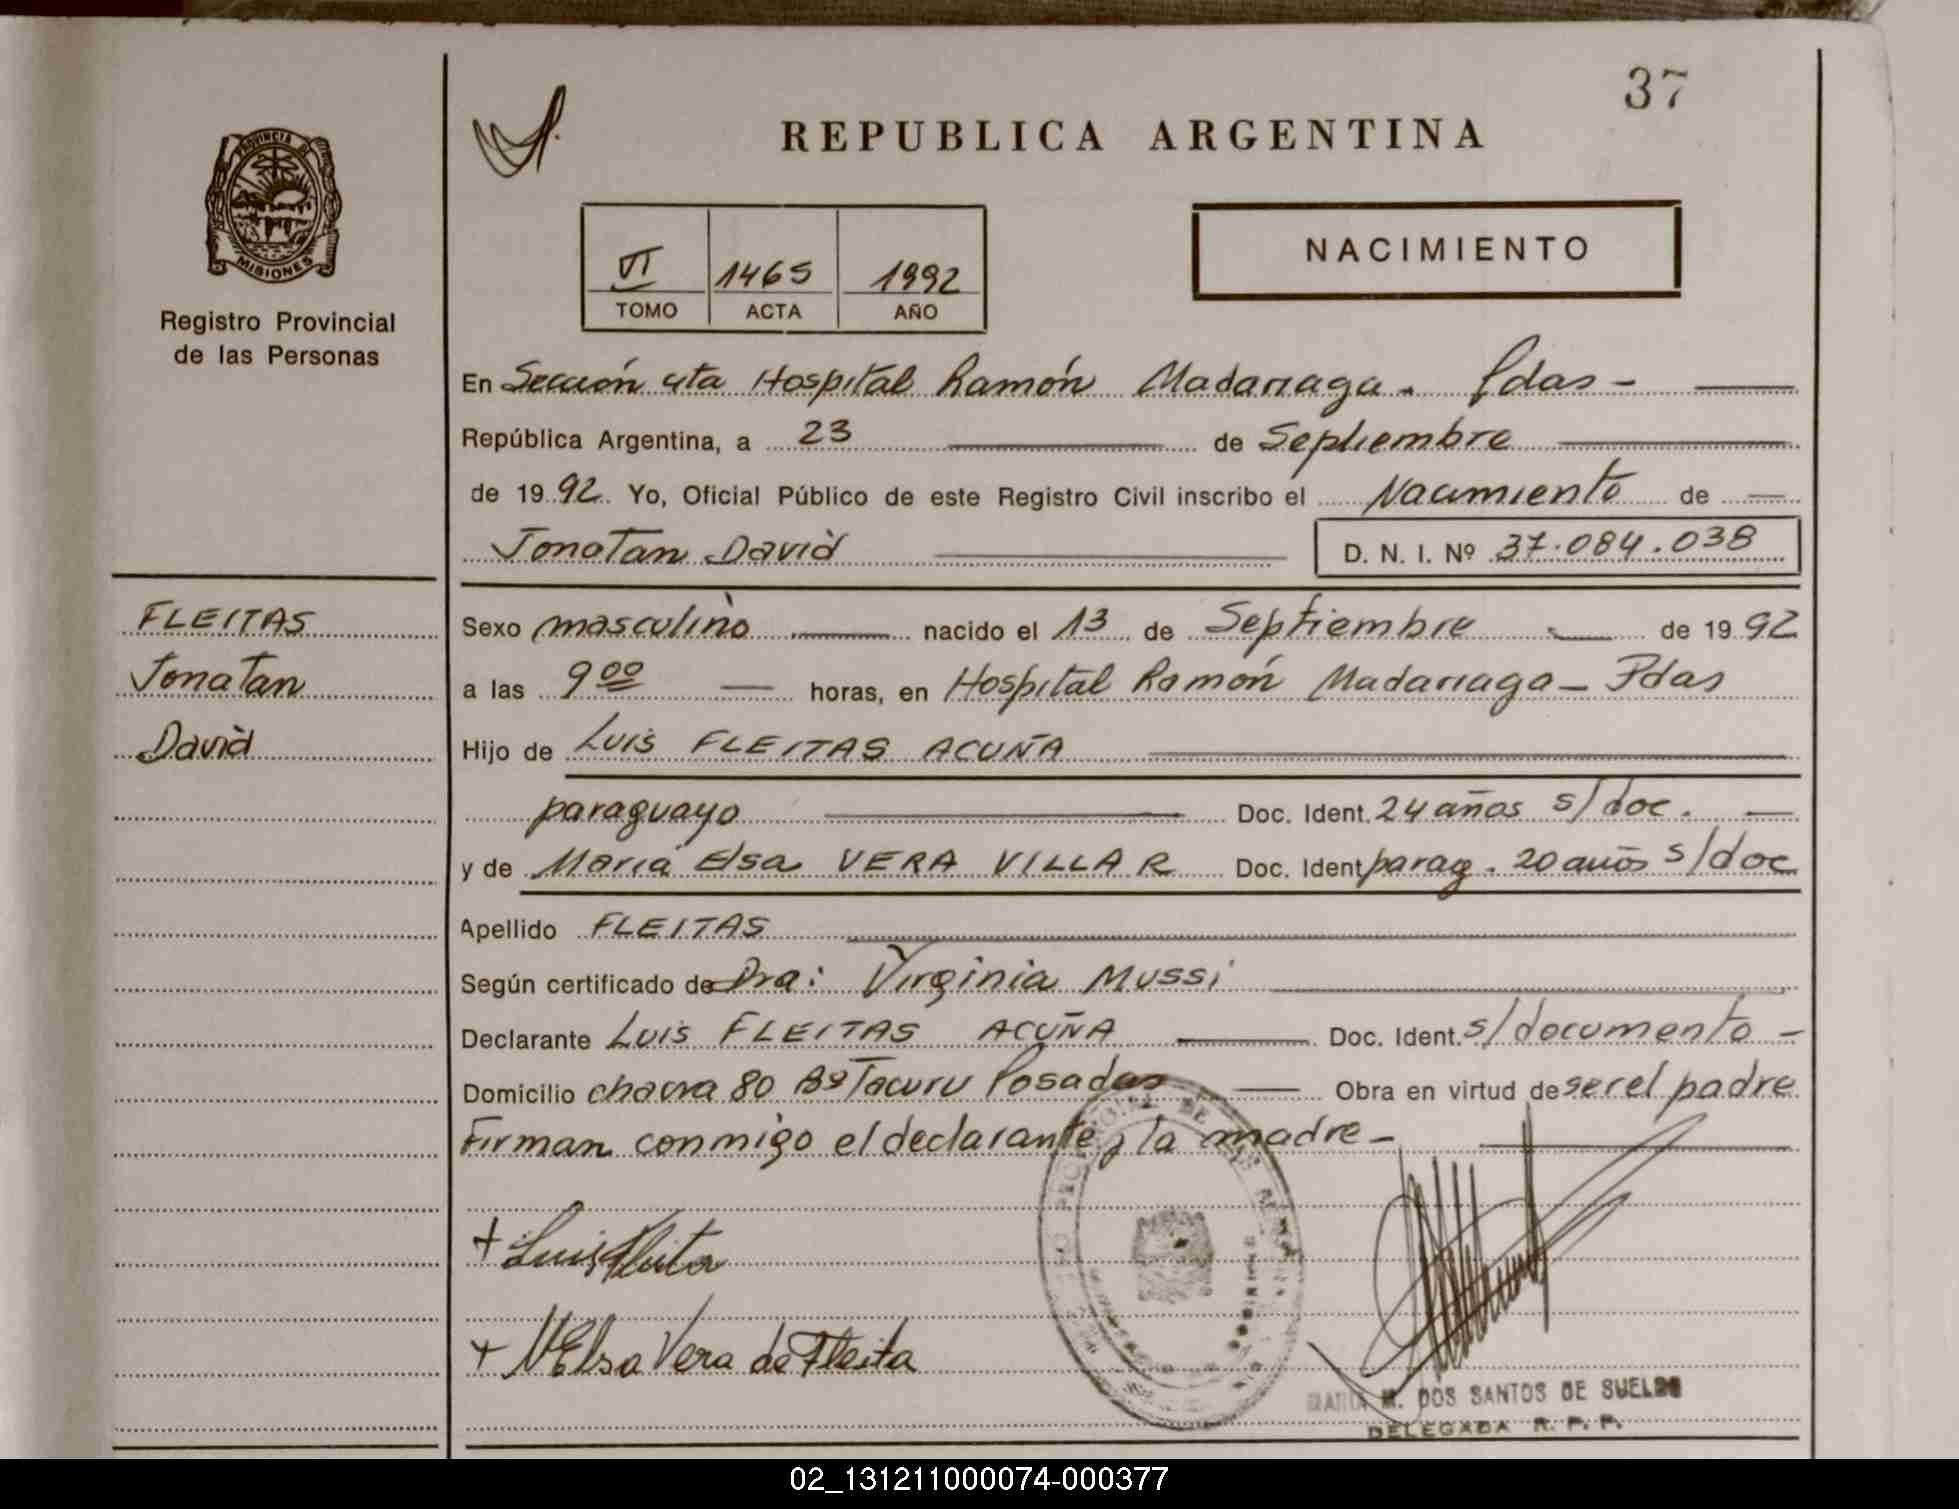 37
REPUBLICA ARGENTINA
PROVINCIA DE
MISIONES
Registro Provincial
de las Personas
VI 1465 1992
TOMO ACTA AÑO
NACIMIENTO
En Sección 4ta Hospital Ramón Madariaga. Pdas -
República Argentina, a 23 de Septiembre
de 1992. Yo, Oficial Público de este Registro Civil inscribo el Nacimiento de
Jonatan David D. N. I. Nº 37.084.038
FLEITAS
Jonatan
David
Sexo masculino nacido el 13 de Septiembre de 1992
a las 9 00 horas, en Hospital Ramón Madariaga - Pdas
Hijo de Luis FLEITAS ACUÑA
paraguayo Doc. Ident. 24 años s/doc.
y de María Elsa VERA VILLAR Doc. Ident parag. 20 años s/doc
Apellido FLEITAS
Según certificado de Dra: Virginia Mussi
Declarante Luis FLEITAS ACUÑA Doc. Ident. s/documento -
Domicilio chacra 80 Bº Tacuru Posadas Obra en virtud de ser el padre
Firman conmigo el declarante y la madre -
+ Luis Fleita
+ M Elsa Vera de Fleita
M. DOS SANTOS DE SUELDO
DELEGADA R. P. P.
02_131211000074-000377